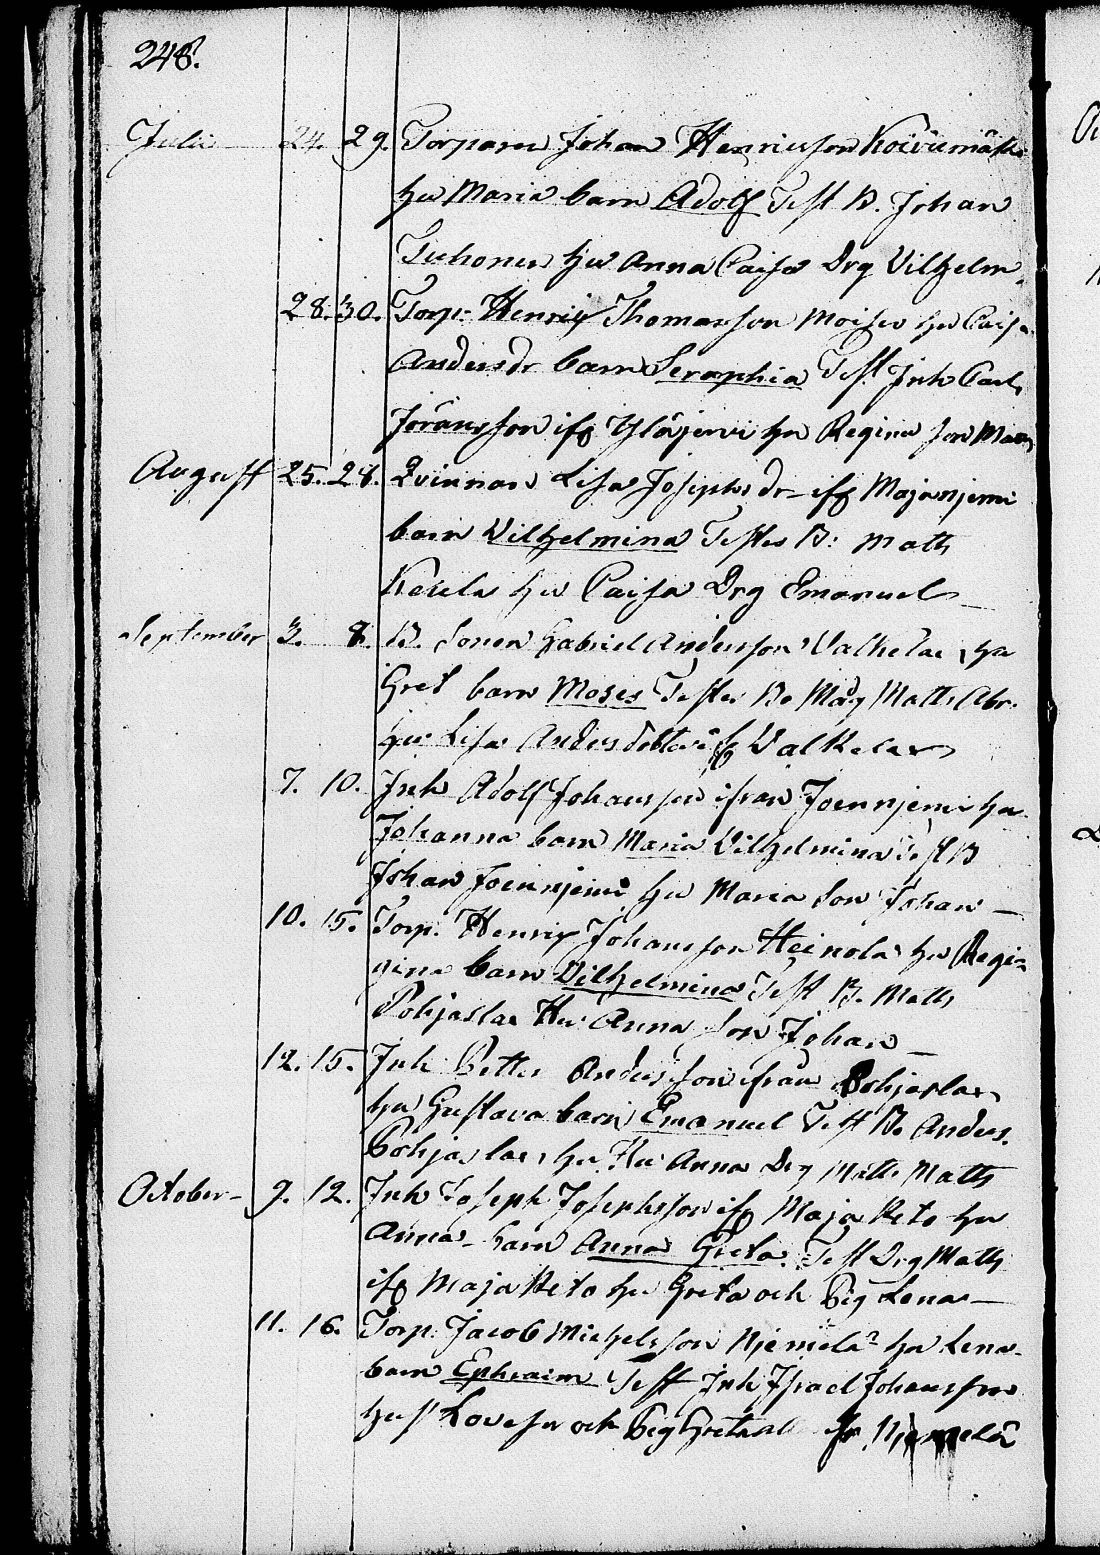 248.
Julii 24. 29. Torparen Johan Henricsson Koivumäki
hu Maria barn Adolf Test B. Johan
Tuhonen hu Anna Caisa Drg Vilhelm
28. 30. Torp. Henrix Thomasson Moisio hu Caisa
Andersdr barn Seraphia Test. Inh Carl
Jöransson ifr Ylöjervi hu Regina son Mats
August 25. 28. Qvinnan Lisa Josephsdr ifr Majanjemi
barn Vilhelmina Testes B: Matts
Kesela hu Caisa Drg Emanuel
September 3. 8. B. Sonen Gabriel Andersson Valkelae hu
Gret barn Moses Testes Bo Mag Matts Abr.
hu Lisa Andersdotter if Valkelae
7. 10. Inh Adolf Johansson ifrån Joennjemi hu
Johanna barn Maria Vilhelmina Test B
Johan Joennjemi hu Maria son Johan
10. 15. Torp. Henrix Johansson Heinola hu Regi=
gina barn Vilhelmina Test B. Matts
Pohjaslae Hu Anna son Johan
12. 15. Inh Petter Andersson ifrån Pohjaslae
hu Gustava barn Emanuel Test Bo Anders
Pohjaslae, hu Hu Anna Drg Matts Matts
October 9. 12. Inh Joseph Josephsson ifr Maja Keto hu
Anna barn Anna Greta Test Drg Matts
ifr Maja Keto hu Greta och Pig Lena
11. 16. Torp. Jacob Michelsson Njemelä hu Lena
barn Ephraim Test Inh Israel Johansson
hust Lovisa och Pig Greta fr Njemelä